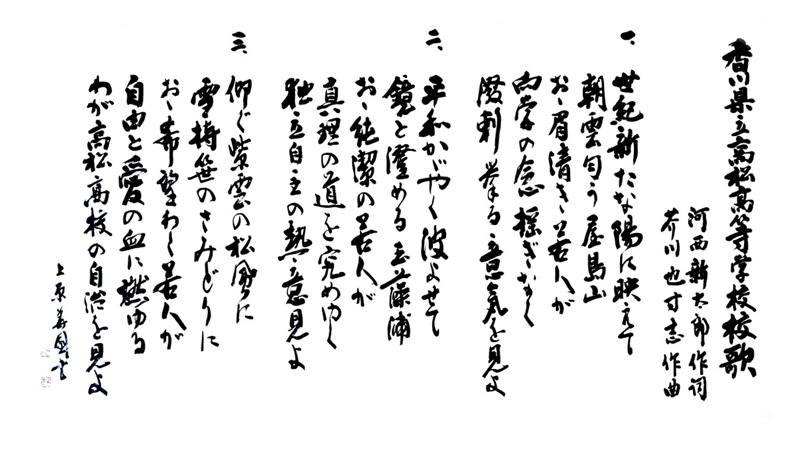 香川県立高松高等学校校歌
河西新太郎作詞
芥川也寸志作曲
一、
世紀新たな陽に映えて
朝雲匂う屋島山
おゝ眉清き若人が
向学の念揺ぎなく
溌剌挙る意気を見よ
二、
平和かがやく波よせて
鏡と澄める玉藻浦
おゝ純潔の若人が
真理の道を究めゆく
独立自主の熱意見よ
三、
仰ぐ紫雲の松風に
雪持笹のさみどりに
おゝ希望わく若人が
自由と愛の血に燃ゆる
わが高松高校の自治を見よ